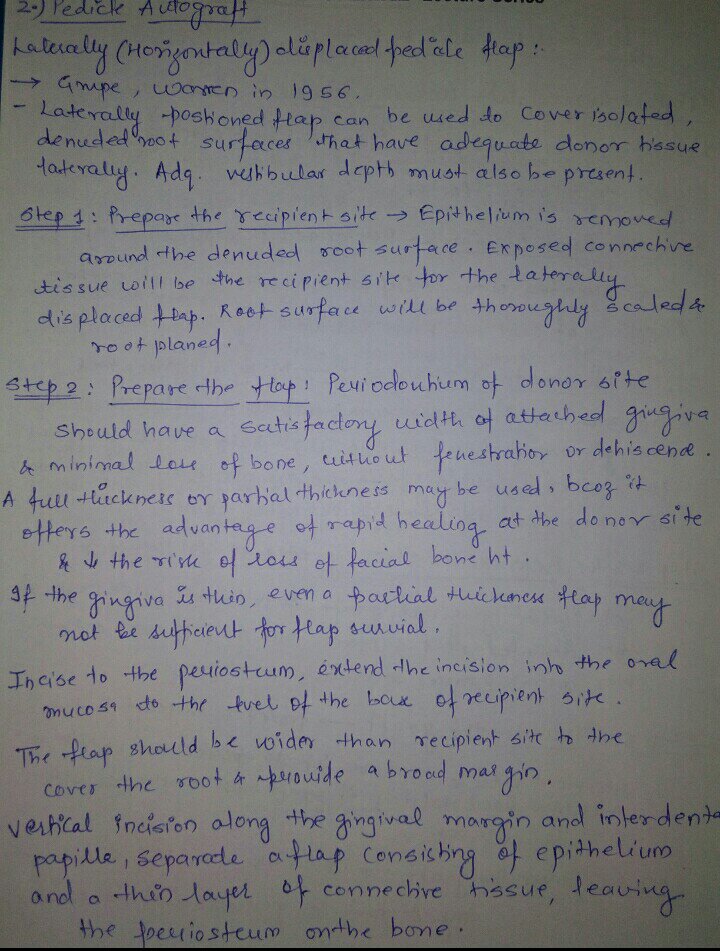 Lecture Series
2.) Pedicle Autograft
Laterally (Horizontally) displaced pedicle flap :-
→ Grupe, Warren in 1956.
- Laterally positioned flap can be used to cover isolated,
denuded root surfaces that have adequate donor tissue
laterally. Adq. vestibular depth must also be present.
Step 1 : Prepare the recipient site → Epithelium is removed
around the denuded root surface. Exposed connective
tissue will be the recipient site for the laterally
displaced flap. Root surface will be thoroughly scaled &
root planed.
Step 2 : Prepare the flap : Periodontium of donor site
should have a satisfactory width of attached gingiva
& minimal loss of bone, without fenestration or dehiscence.
A full thickness or partial thickness may be used, bcoz it
offers the advantage of rapid healing at the donor site
& ↓ the risk of loss of facial bone ht.
If the gingiva is thin, even a partial thickness flap may
not be sufficient for flap survial.
Incise to the periosteum, extend the incision into the oral
mucosa to the level of the base of recipient site.
The flap should be wider than recipient site to the
cover the root & provide a broad margin.
Vertical incision along the gingival margin and interdenta
papilla, separate a flap consisting of epithelium
and a thin layer of connective tissue, leaving
the periosteum on the bone.